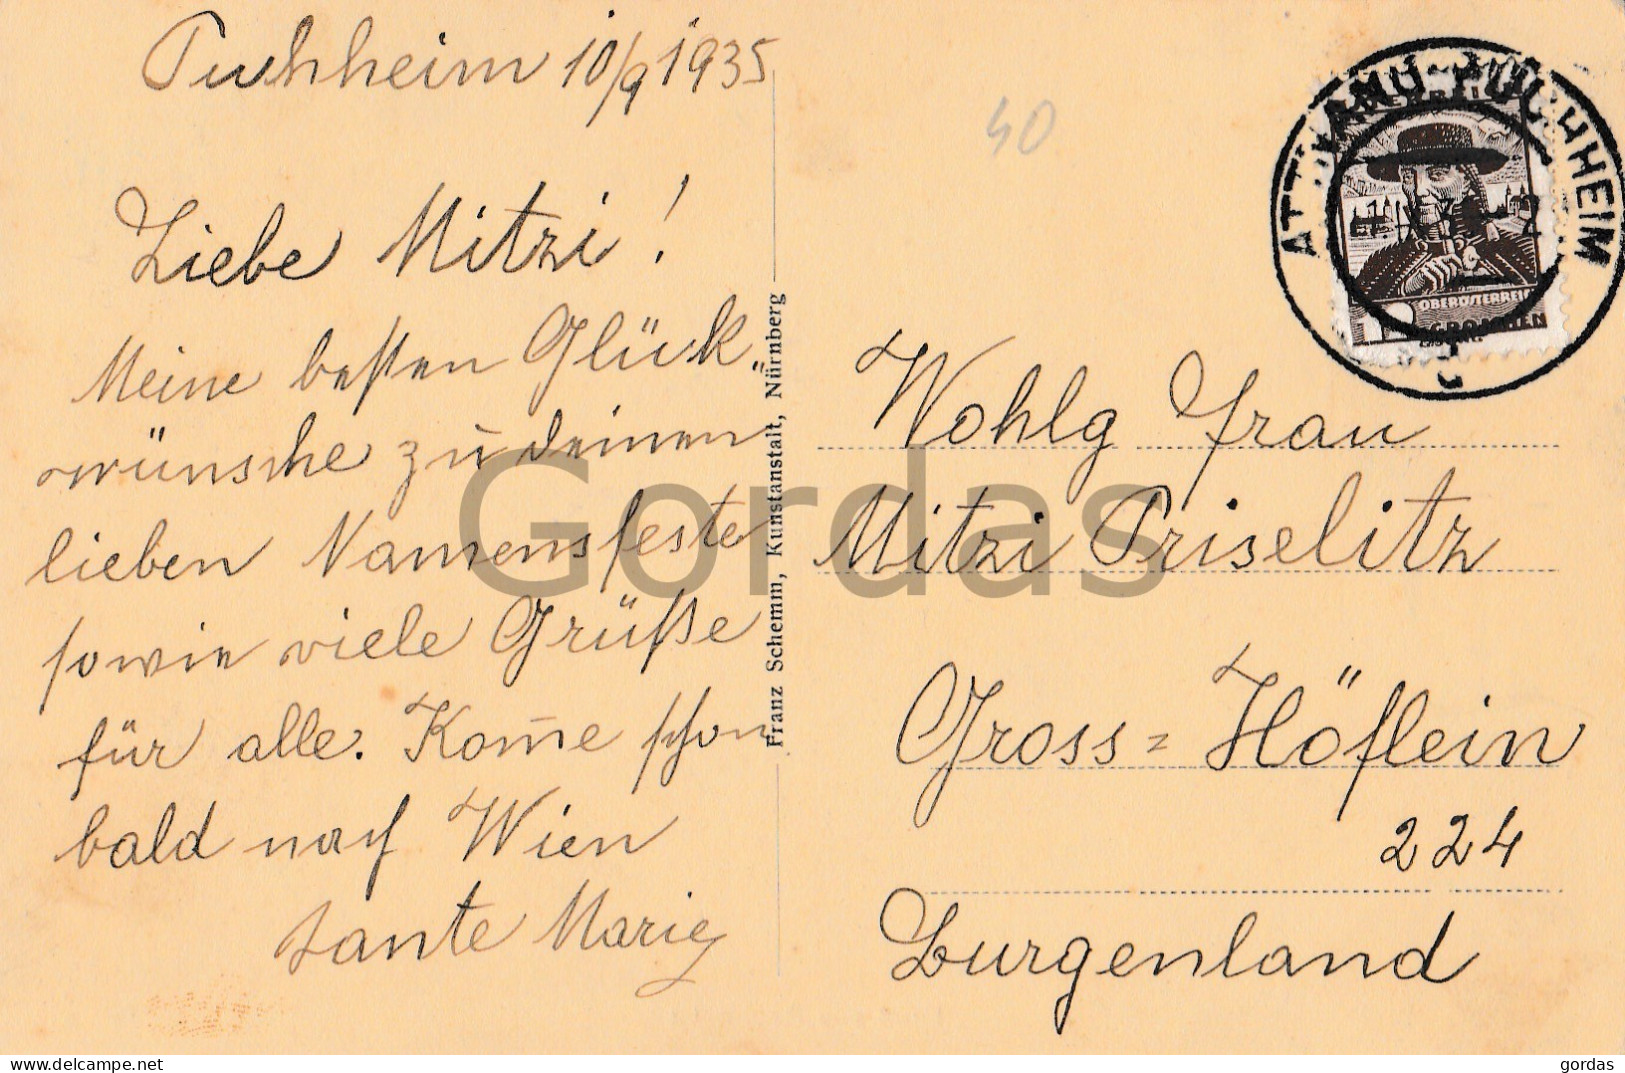 Puchheim 10/9 1935
Liebe Mitzi!
Meine besten Glück
wünsche zu deinen
lieben Namensfeste
sowie viele Grüße
für alle. Kom̄e schon
bald nach Wien
tante Marie
Franz Schemm, Kunstanstalt, Nürnberg
40
PUCHHEIM
OBERÖSTERREICH
GROSCHEN
Wohlg Frau
Mitzi Priselitz
Gross=Höflein
224
Burgenland
Gordas
delcampe.net
gordas